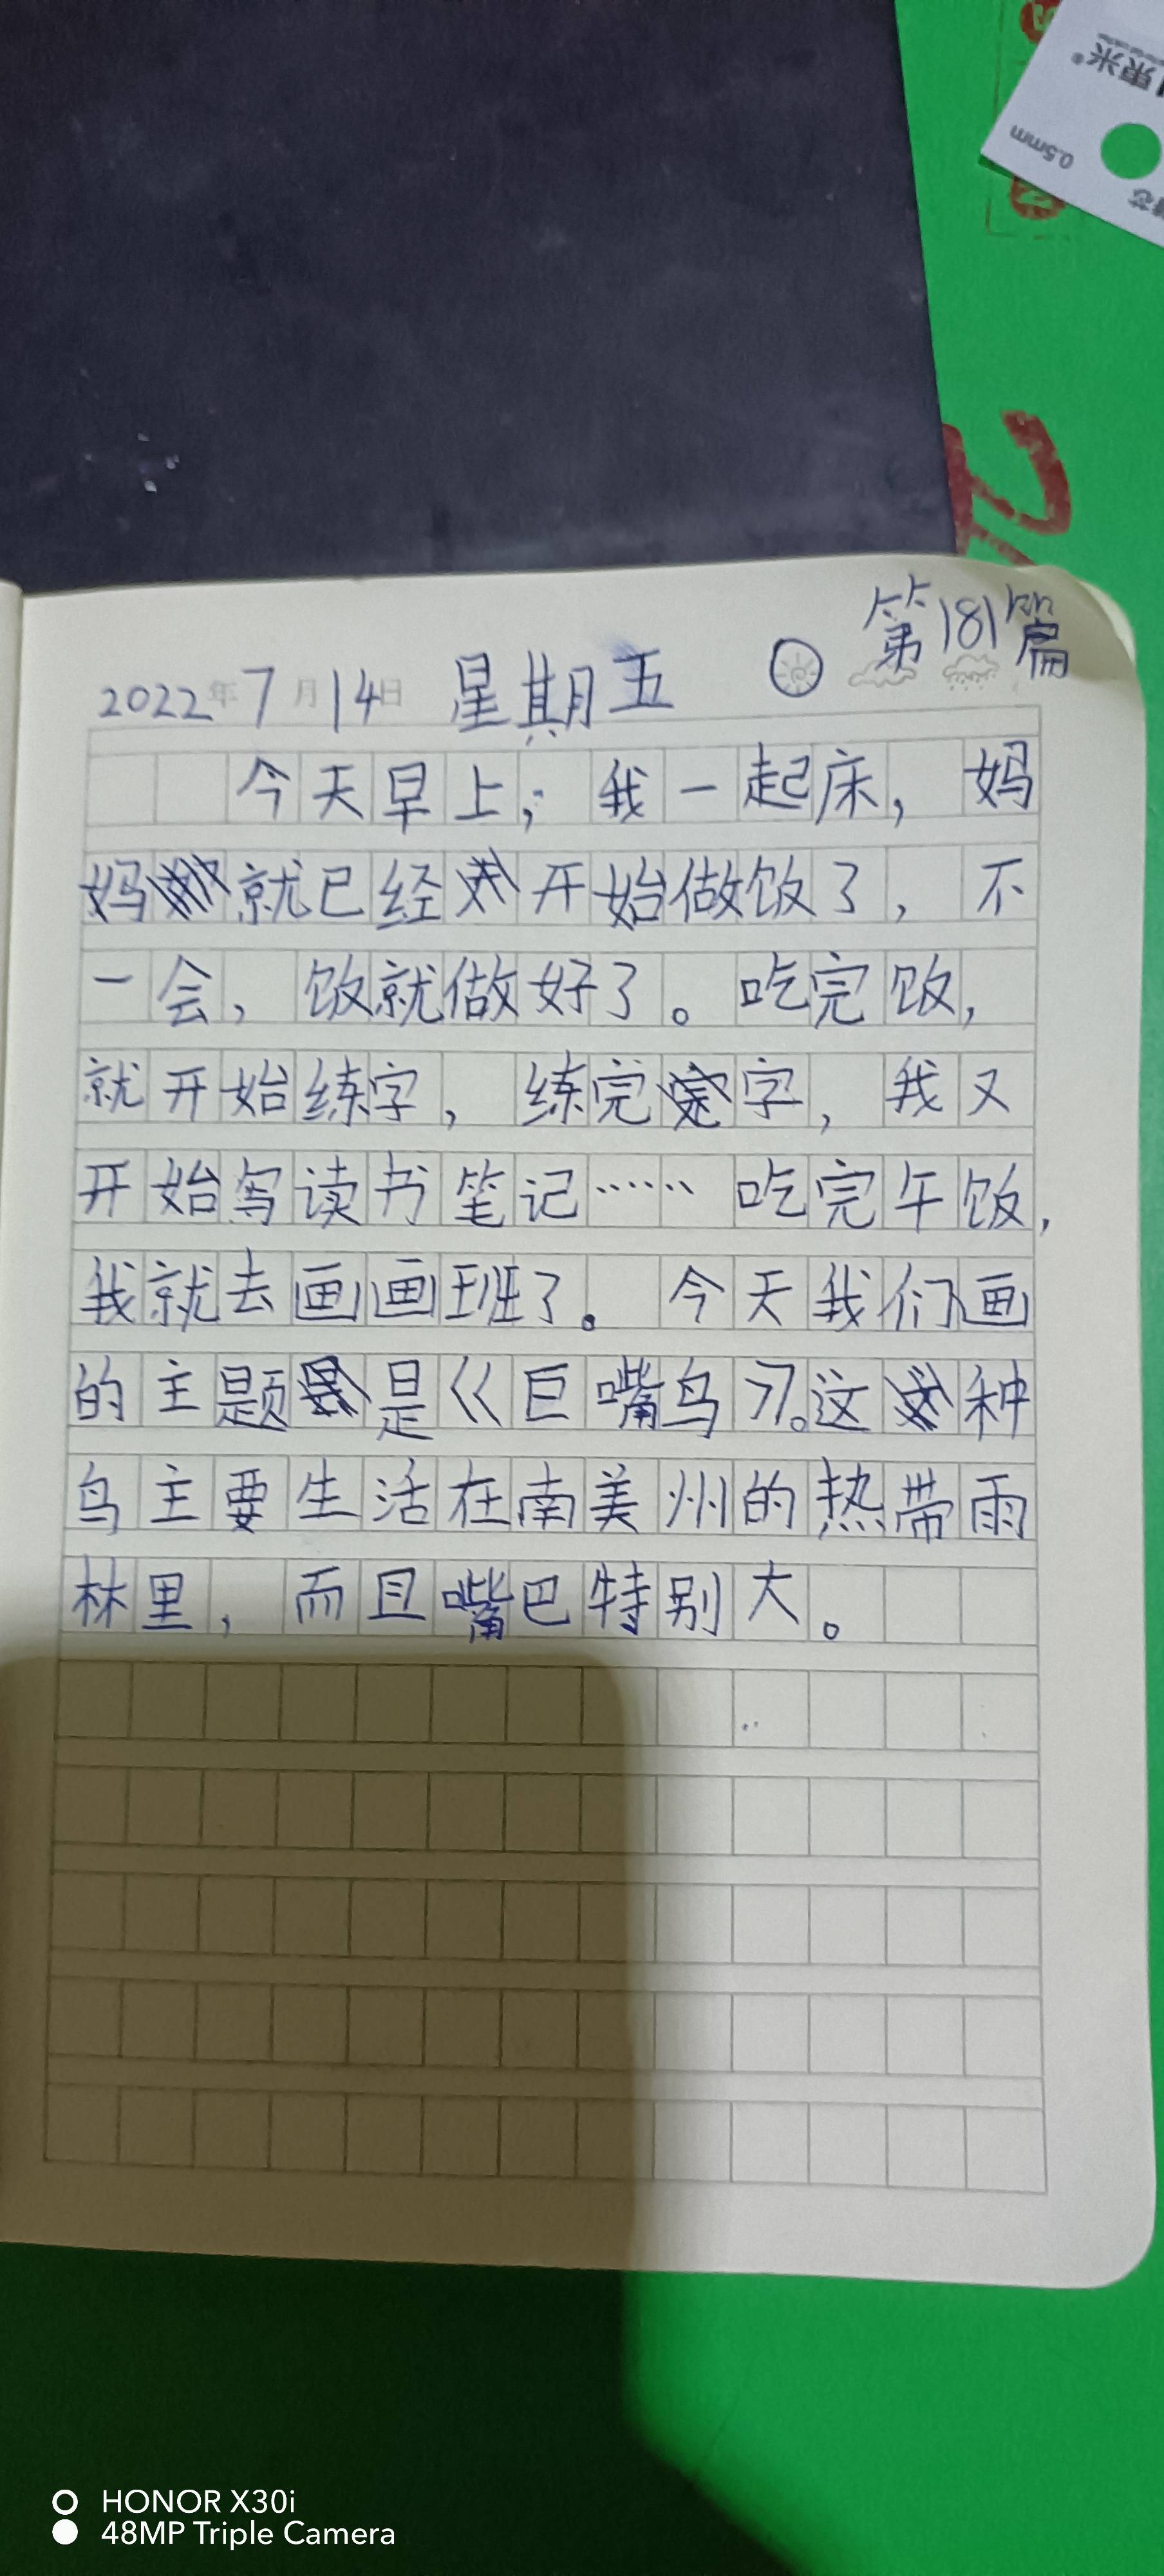 果米®
0.5mm
芯
第181篇
2022年7月14日 星期五
今天早上，我一起床，妈
妈就已经开始做饭了，不
一会，饭就做好了。吃完饭，
就开始练字，练完字，我又
开始写读书笔记……吃完午饭，
我就去画画班了。今天我们画
的主题是《巨嘴鸟》。这种
鸟主要生活在南美州的热带雨
林里，而且嘴巴特别大。
HONOR X30i
48MP Triple Camera